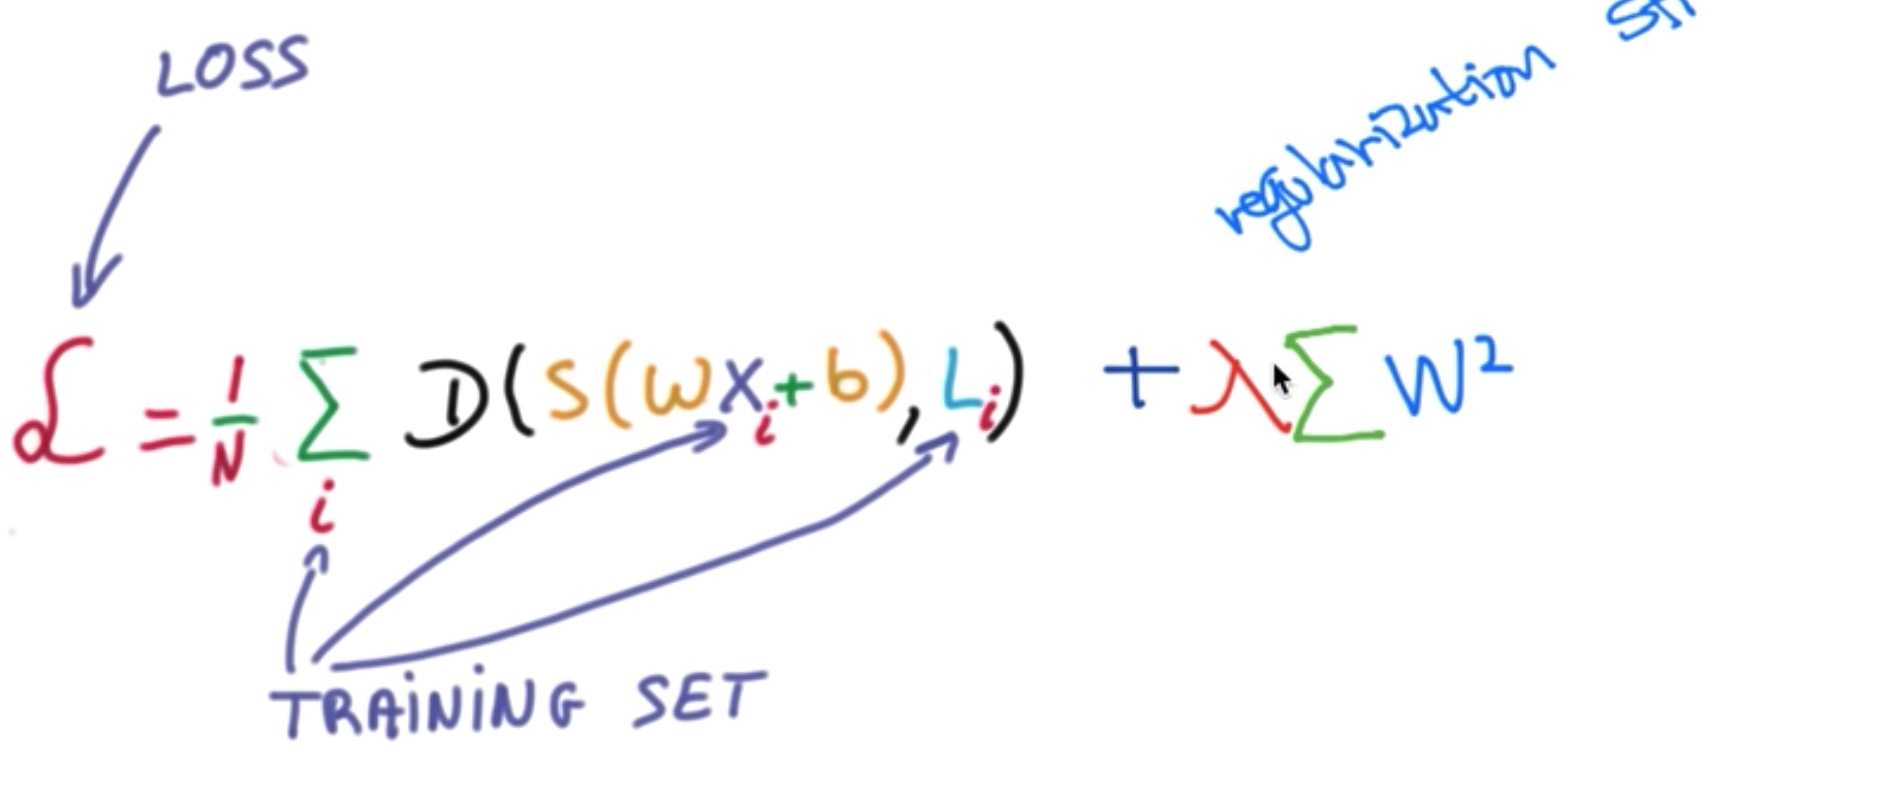 LOSS
regularization
ℒ = 1/N Σ_i D(S(WX_i + b), L_i) + λ Σ W²
TRAINING SET